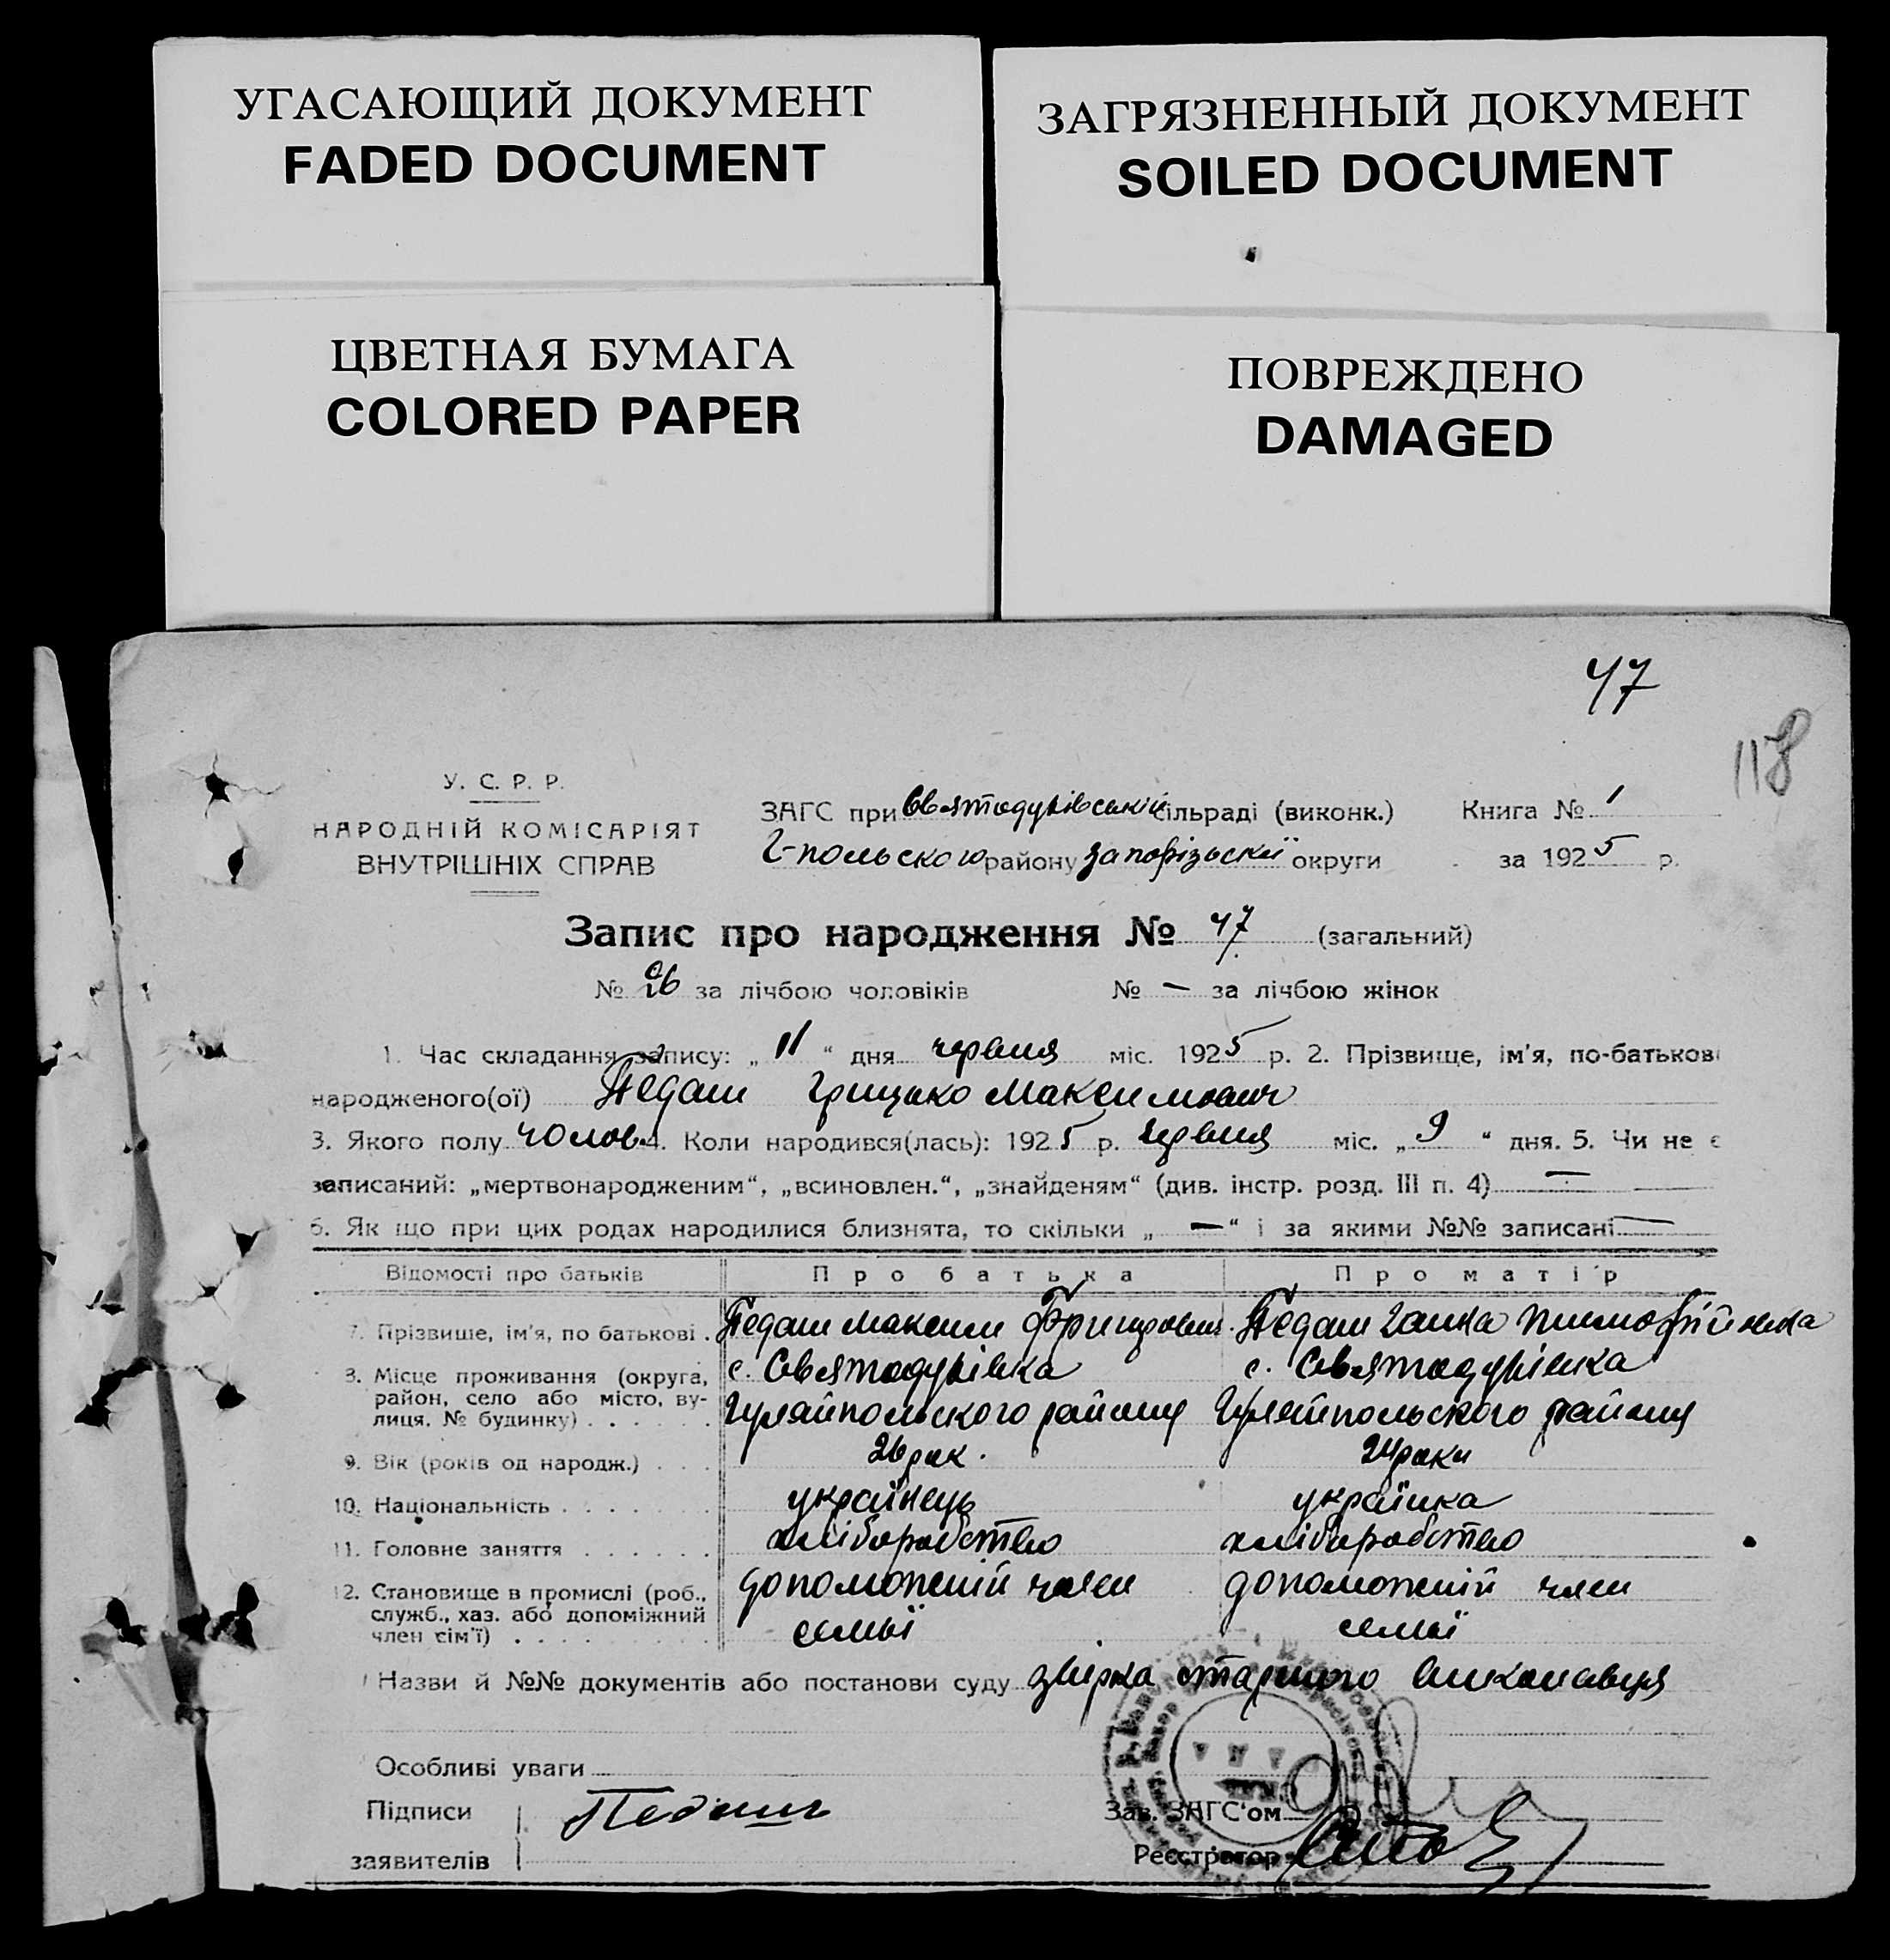 УГАСАЮЩИЙ ДОКУМЕНТ
FADED DOCUMENT
ЗАГРЯЗНЕННЫЙ ДОКУМЕНТ
SOILED DOCUMENT
ЦВЕТНАЯ БУМАГА
COLORED PAPER
ПОВРЕЖДЕНО
DAMAGED
47
118
У. С. Р. Р.
НАРОДНІЙ КОМІСАРІЯТ
ВНУТРІШНІХ СПРАВ
ЗАГС при Святодухівській сільраді (виконк.) Книга № 1
Г-польського району Запорізької округи за 1925 р.
Запис про народження № 47 (загальний)
№ 26 за лічбою чоловіків № — за лічбою жінок
1. Час складання запису: „11“ дня червня міс. 1925 р. 2. Прізвище, ім'я, по-батькові
народженого(ої) Педаш Грицько Максимович
3. Якого полу чолов. 4. Коли народився(лась): 1925 р. червня міс. „9“ дня. 5. Чи не є
записаний: „мертвонародженим“, „всиновлен.“, „знайденям“ (див. інстр. розд. III п. 4) —
6. Як що при цих родах народилися близнята, то скільки „—“ і за якими №№ записані —
Відомості про батьків Про батька Про матір
7. Прізвище, ім'я, по батькові . Педаш Максим Педаш Ганна
8. Місце проживання (округа, район, село або місто, вулиця, № будинку) . . . . . .
с. Святодухівка с. Святодухівка
Гуляйпольского району Гуляйпольского району
9. Вік (років од народж.) . . . 26 рок. 24 роки
10. Національність . . . . . . . українець українка
11. Головне заняття . . . . . . хліборобство хліборобство
12. Становище в промислі (роб., служб., хаз. або допоміжний член сім'ї) . . . . . . . . .
допоможній член допоможній член
семьї семьї
Назви й №№ документів або постанови суду звірка старшого виконавця
Особливі уваги
Підписи Педаш
заявителів
Зав. ЗАГС'ом
Реєстратор